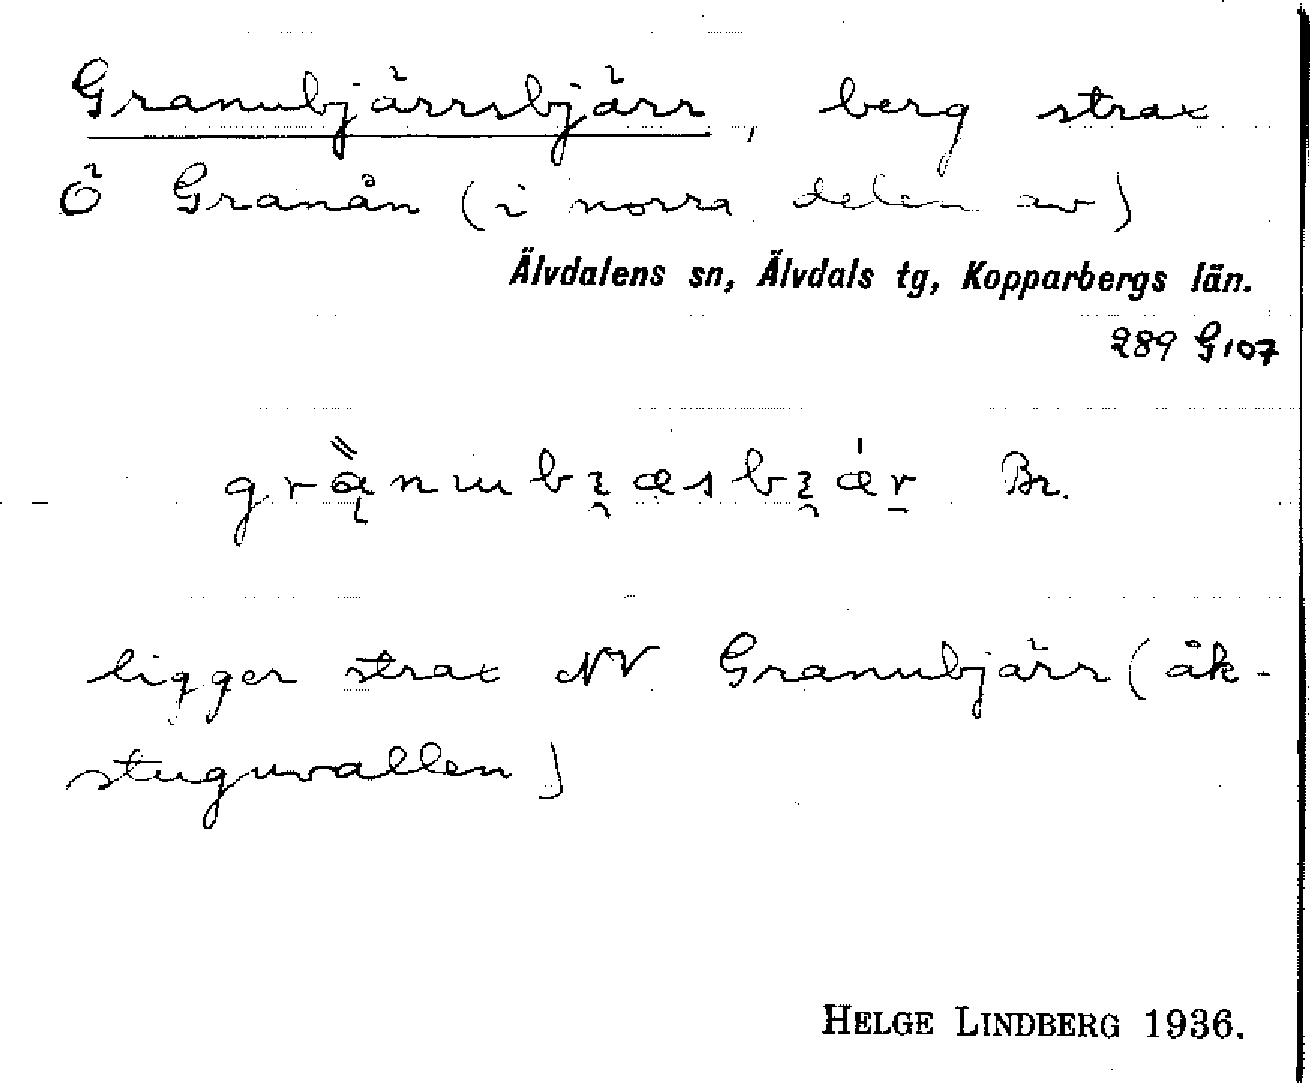 Granubjärrsbjärr, berg strax
Ö Granån (i norra delen av)
Älvdalens sn, Älvdals tg, Kopparbergs län.
289 G107
Br.
ligger strax NV Granubjärr (åk-
stuguvallen)
HELGE LINDBERG 1936.